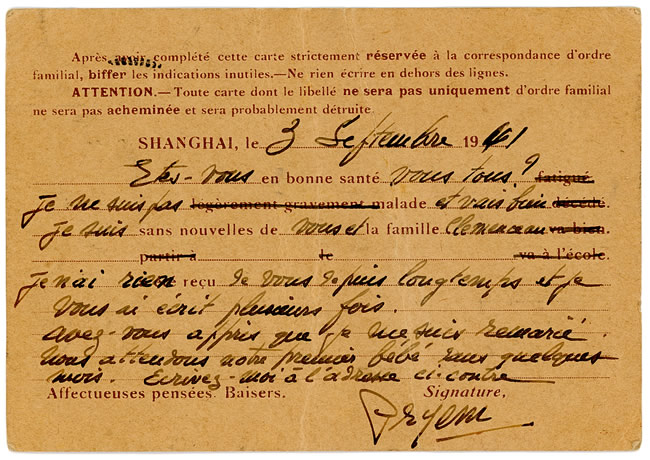 Après avoir complété cette carte strictement réservée à la correspondance d'ordre
familial, biffer les indications inutiles.—Ne rien écrire en dehors des lignes.
ATTENTION.—Toute carte dont le libellé ne sera pas uniquement d'ordre familial
ne sera pas acheminée et sera probablement détruite.
SHANGHAI, le 3 Septembre 1941
Etes-vous en bonne santé vous tous? fatigué
je ne suis pas légèrement gravement malade et vais bien décédé.
je suis sans nouvelles de vous et la famille Clemenceau va bien.
partir à le va à l'école.
je n'ai rien reçu de vous depuis longtemps et je
vous ai écrit plusieurs fois.
avez-vous appris que je me suis remarié.
Nous attendons notre premier bébé dans quelques
mois. Ecrivez-moi à l'adresse ci-contre
Affectueuses pensées. Baisers. Signature,